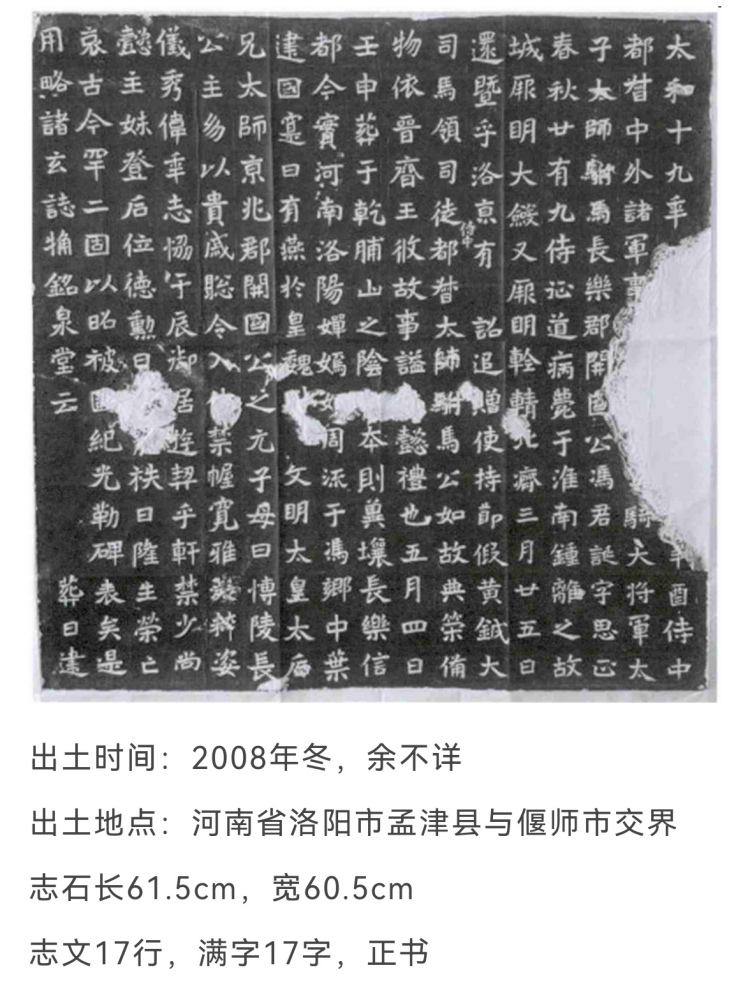 太和十九年辛酉侍中
都督中外諸軍事騎大將軍太
子太師駙馬長樂郡開國公馮君誕字思正
春秋廿有九侍征道病薨于淮南鍾離之故
城厥明大斂又厥明輇輤北濟三月廿五日
還暨乎洛京有侍中詔追贈使持節假黃鉞大
司馬領司徒都督太師駙馬公如故典策備
物依晉齊王攸故事謚懿禮也五月四日
壬申葬于乾脯山之陰本則冀壤長樂信
都今實河南洛陽嬋嫣周流于馮鄉中葉
建國寔曰有燕於皇魏文明太皇太后
兄太師京兆郡開國公之元子母曰博陵長
公主多以貴戚聡令入侍禁幄寬雅凝粹姿
儀秀偉率志恊于辰御居遊契乎軒禁少尚
懿主妹登后位德勳日秩日隆生榮亡
哀古今罕二固以昭被國紀光勒碑表矣是
用略諸玄誌猶銘泉堂云葬日建
出土时间：2008年冬，余不详
出土地点：河南省洛阳市孟津县与偃师市交界
志石长61.5cm，宽60.5cm
志文17行，满字17字，正书